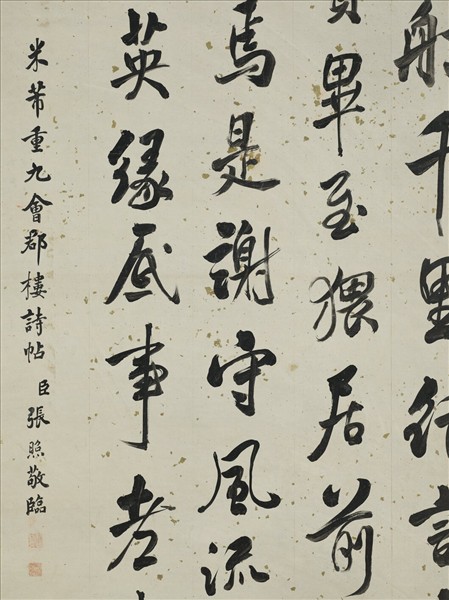 船千里結言
賢畢至猥居前
焉是謝守風流
英緣底事老
米芾重九會郡樓詩帖 臣張照敬臨